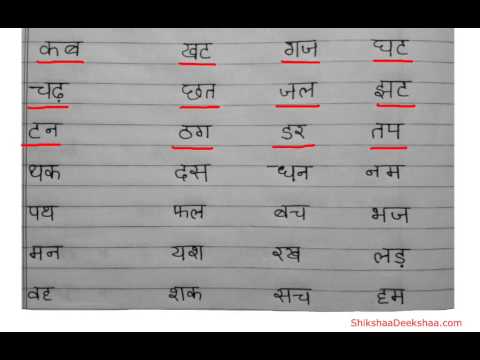 कब खट गज घट
चढ़ छत जल झट
टन ठग डर तप
थक दस धन नम
पथ फल बच भज
मन यश रख लड़
वह शक सच हम
ShikshaaDeekshaa.com